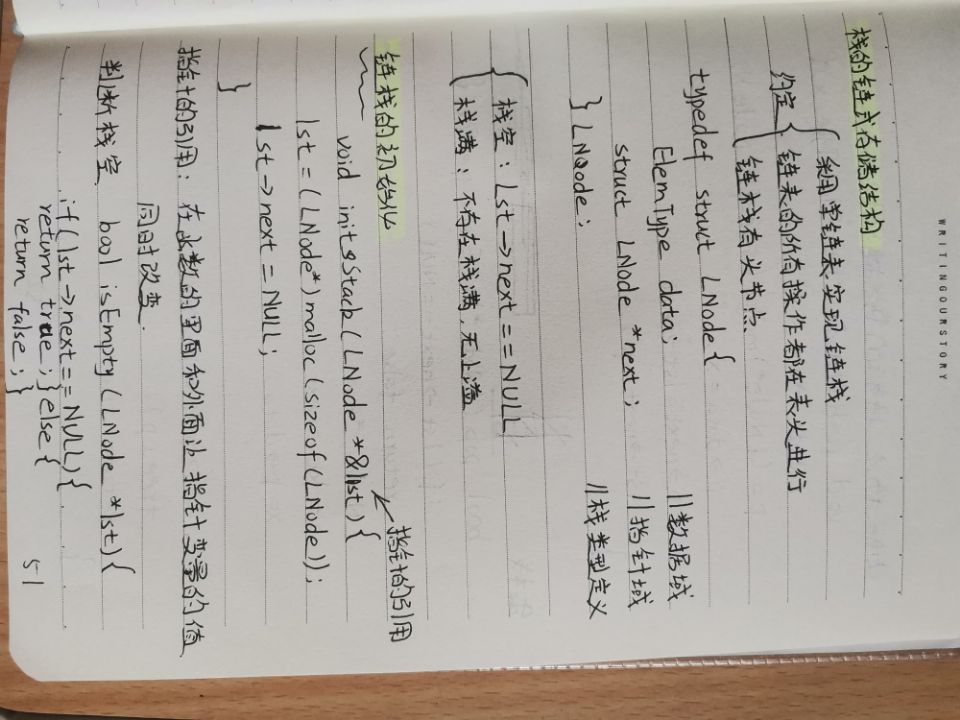 WRITINGOURSTORY
栈的链式存储结构
采用单链表实现链栈
约定 链表的所有操作都在表头进行
链栈有头节点
typedef struct LNode{
ElemType data; //数据域
struct LNode *next; //指针域
} LNQode; //栈类型定义
栈空: Lst->next==NULL
栈满: 不存在栈满,无上溢
指针的引用
链栈的初始化
void initeStack(LNode *&lst){
lst=(LNode*)malloc(sizeof(LNode));
lst->next=NULL;
}
指针的引用: 在函数的里面和外面让指针变量的值
同时改变.
判断栈空 bool isEmpty(LNode *lst){
if(lst->next==NULL){
return true;}else{
return false;}
5-1